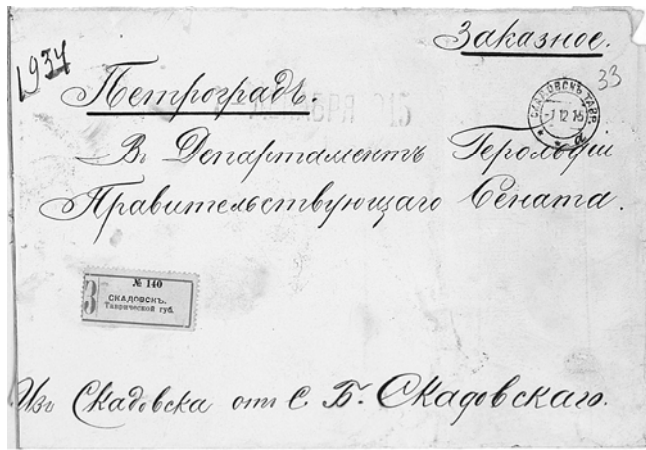 Заказное.
1934
33
Петроградъ.
СКАДОВСКЪ ТАВР.
-7 12 15
а
Въ Департаментъ Герольдіи
Правительствующаго Сената.
№ 140
З
СКАДОВСКЪ.
Таврической губ.
Изъ Скадовска отъ С. Б. Скадовскаго.